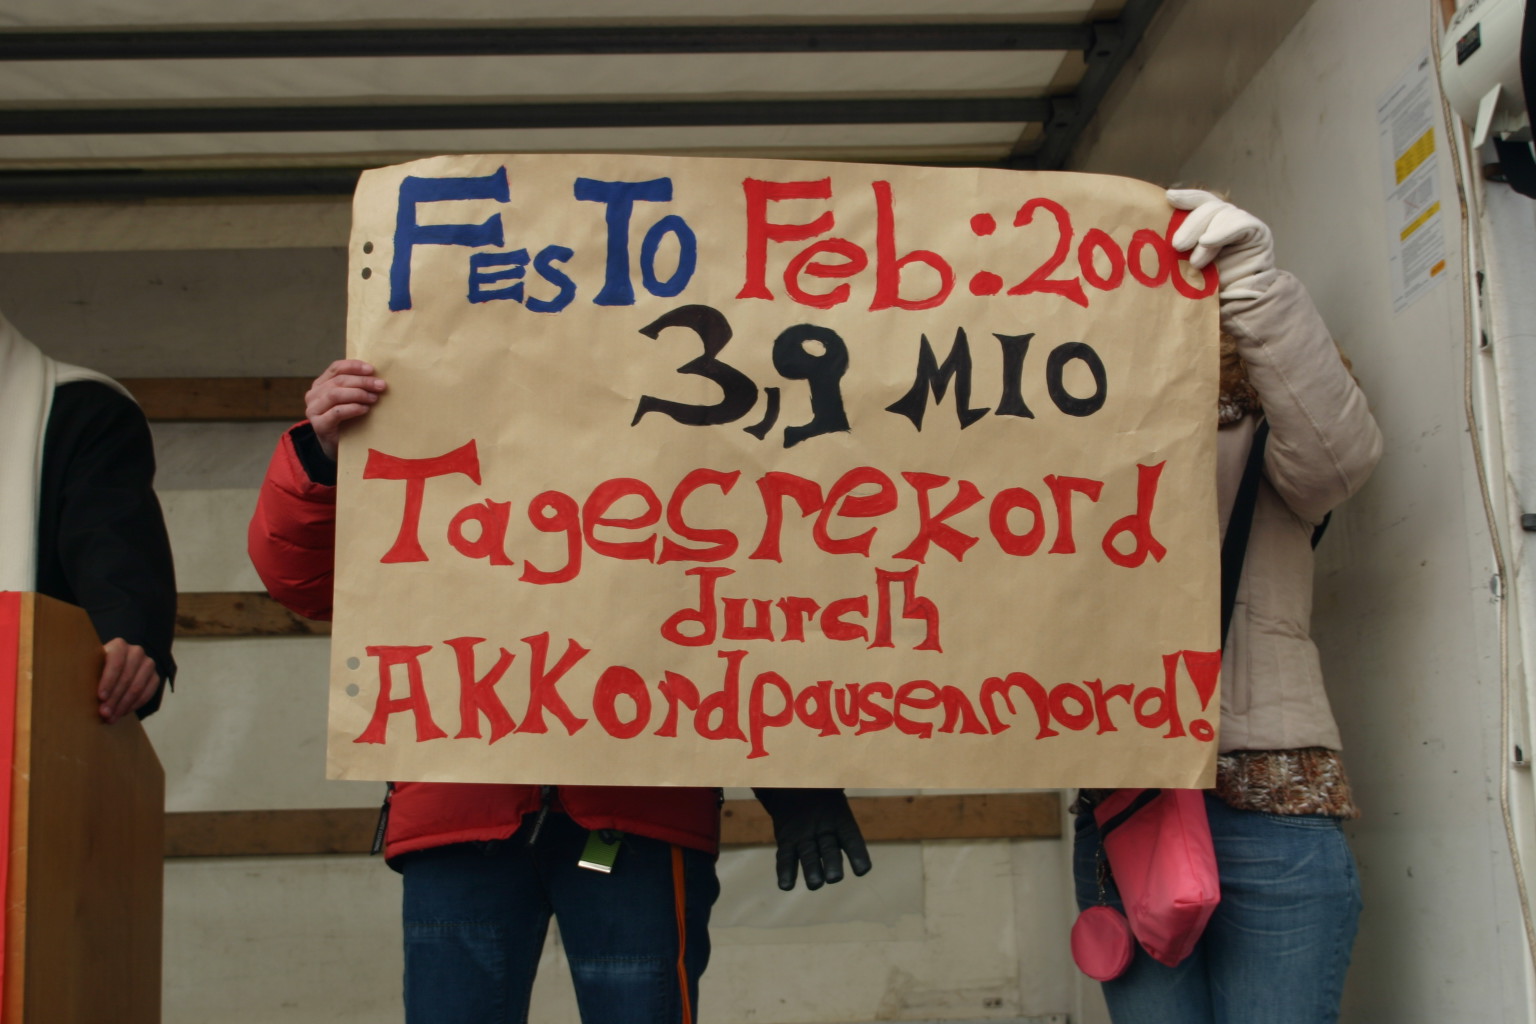 FesTo Feb.:2006
3,9 MIO
Tagesrekord
durch
AKKordpausenmord!